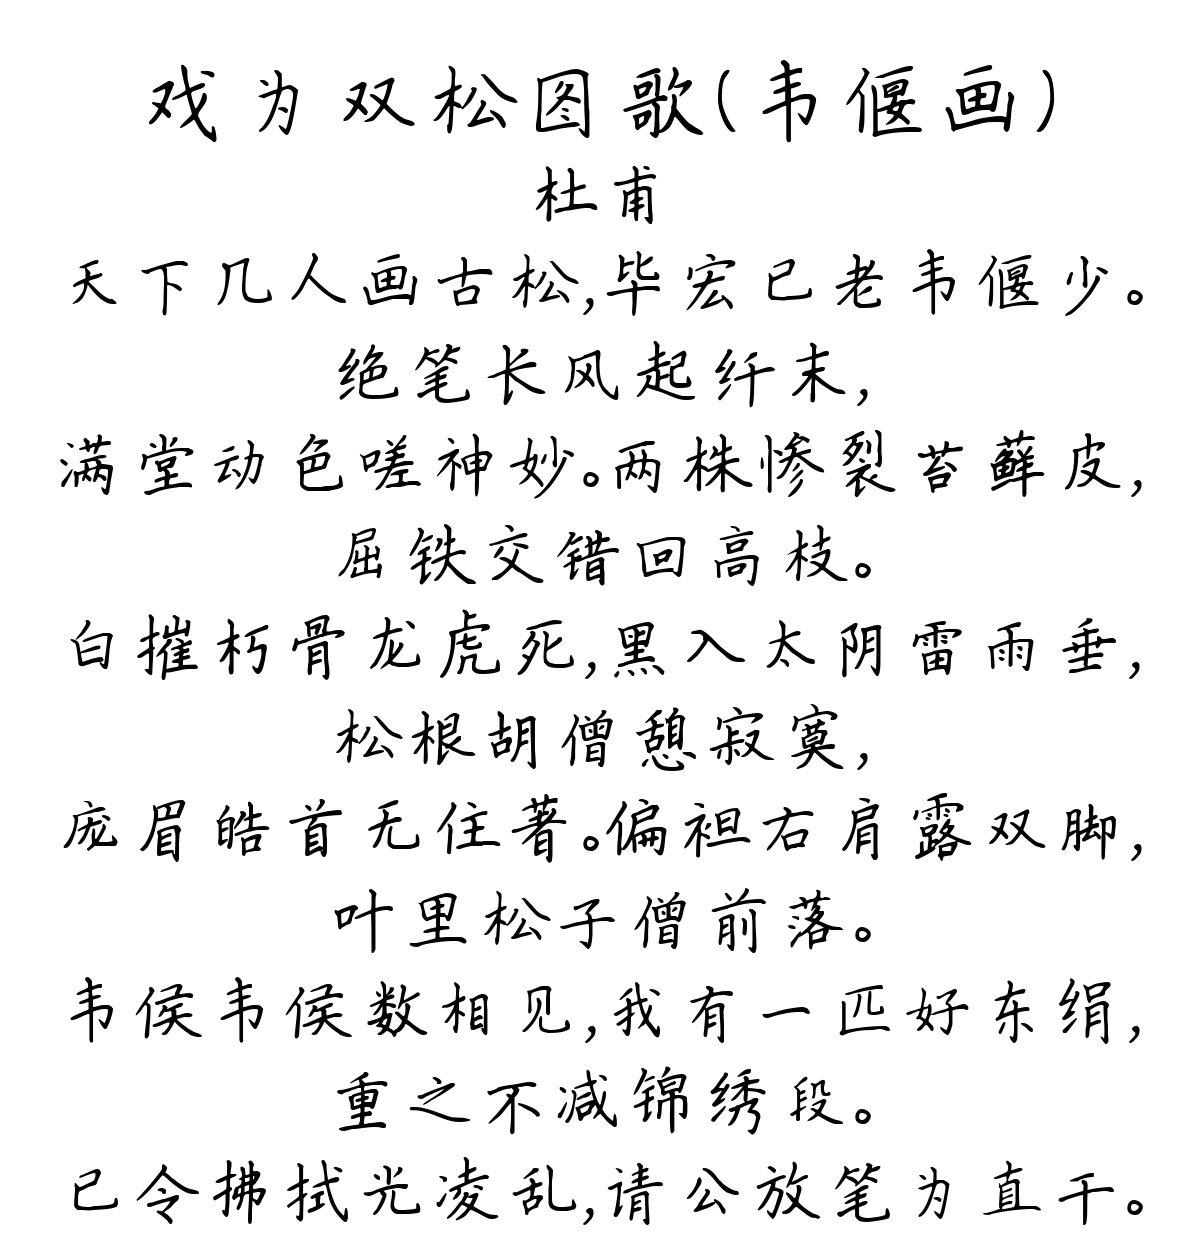 戏为双松图歌(韦偃画)
杜甫
天下几人画古松,毕宏已老韦偃少。
绝笔长风起纤末,
满堂动色嗟神妙。两株惨裂苔藓皮,
屈铁交错回高枝。
白摧朽骨龙虎死,黑入太阴雷雨垂,
松根胡僧憩寂寞,
庞眉皓首无住著。偏袒右肩露双脚,
叶里松子僧前落。
韦侯韦侯数相见,我有一匹好东绢,
重之不减锦绣段。
已令拂拭光凌乱,请公放笔为直干。